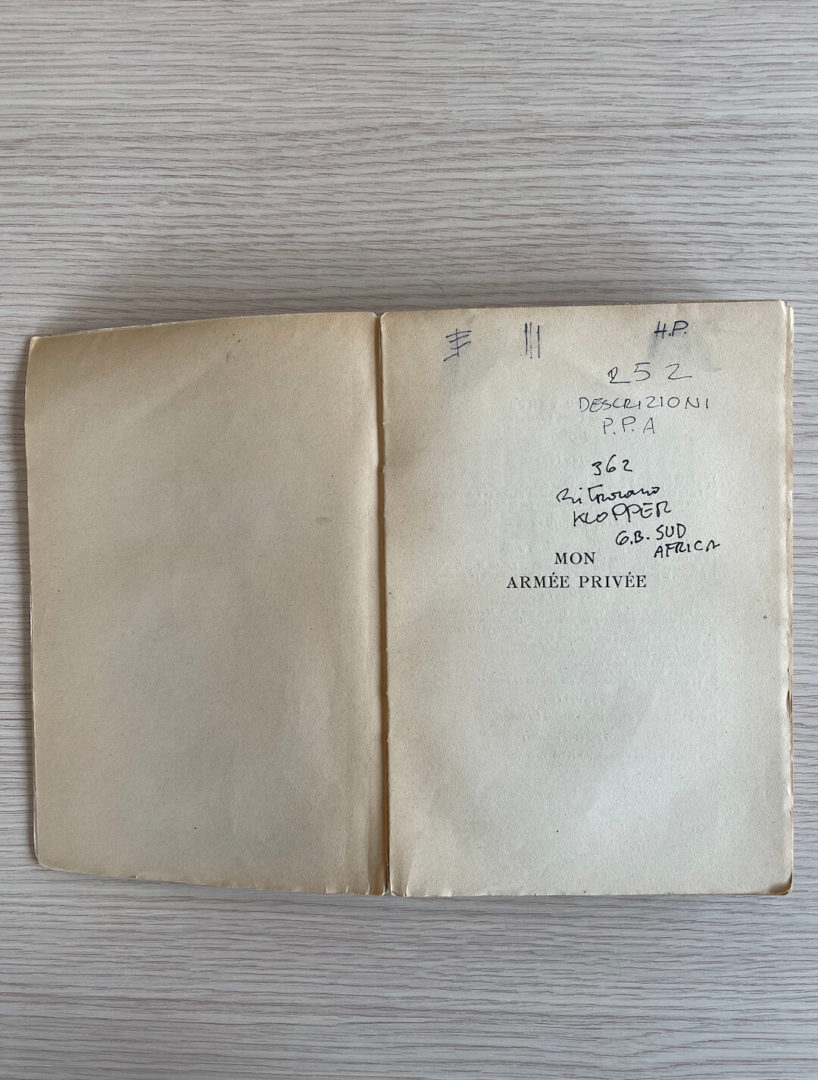 H.P.
252
DESCRIZIONI
P.P.A
362
Ritrovano
KLOPPER
G.B. SUD
AFRICA
MON
ARMÉE PRIVÉE